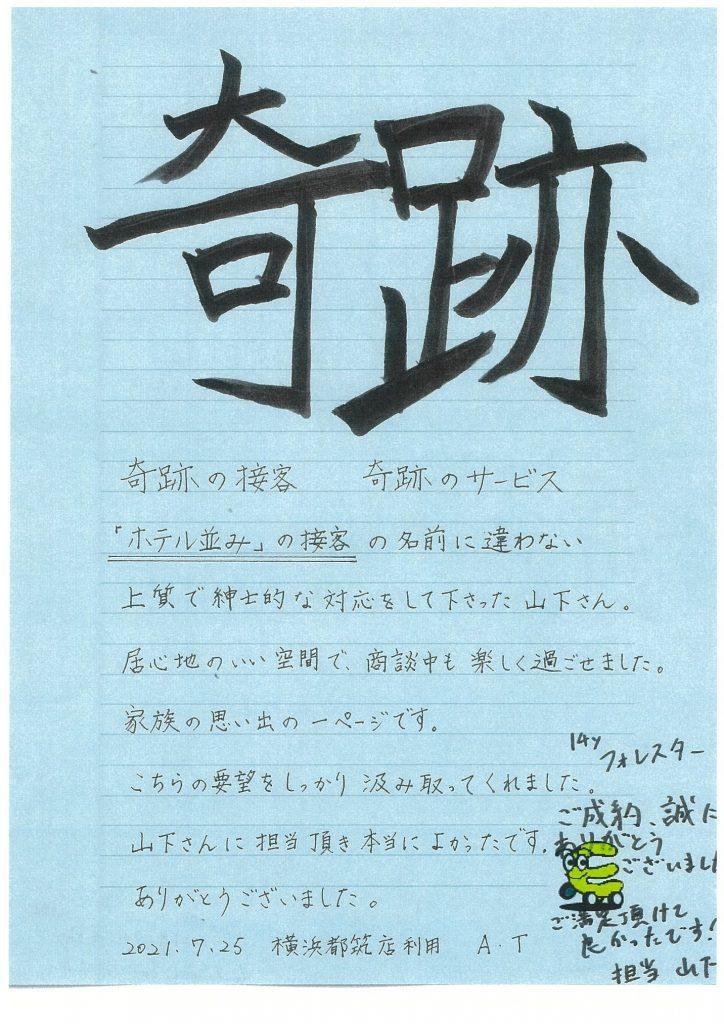 奇跡
奇跡の接客　奇跡のサービス
「ホテル並み」の接客 の名前に違わない
上質で紳士的な対応をして下さった山下さん。
居心地のいい空間で、商談中も楽しく過ごせました。
家族の思い出の一ページです。
こちらの要望をしっかり汲み取ってくれました。
山下さんに担当頂き本当によかったです。
ありがとうございました。
2021.7.25　横浜都筑店利用　A.T
14y
フォレスター
ご成約、誠に
ありがとう
ございまし
ご満足頂けて
良かったです!
担当 山下